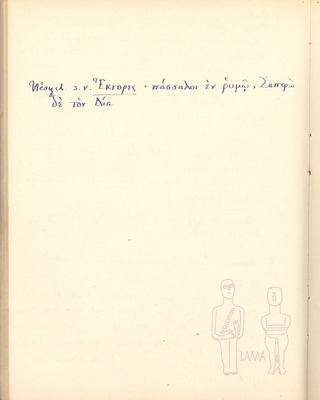 Hésych. s.v. Ἕκτορες · πάσσαλοι ἐν ῥυμῷ, Σαπφὼ
δὲ τὸν Δία
LAMA